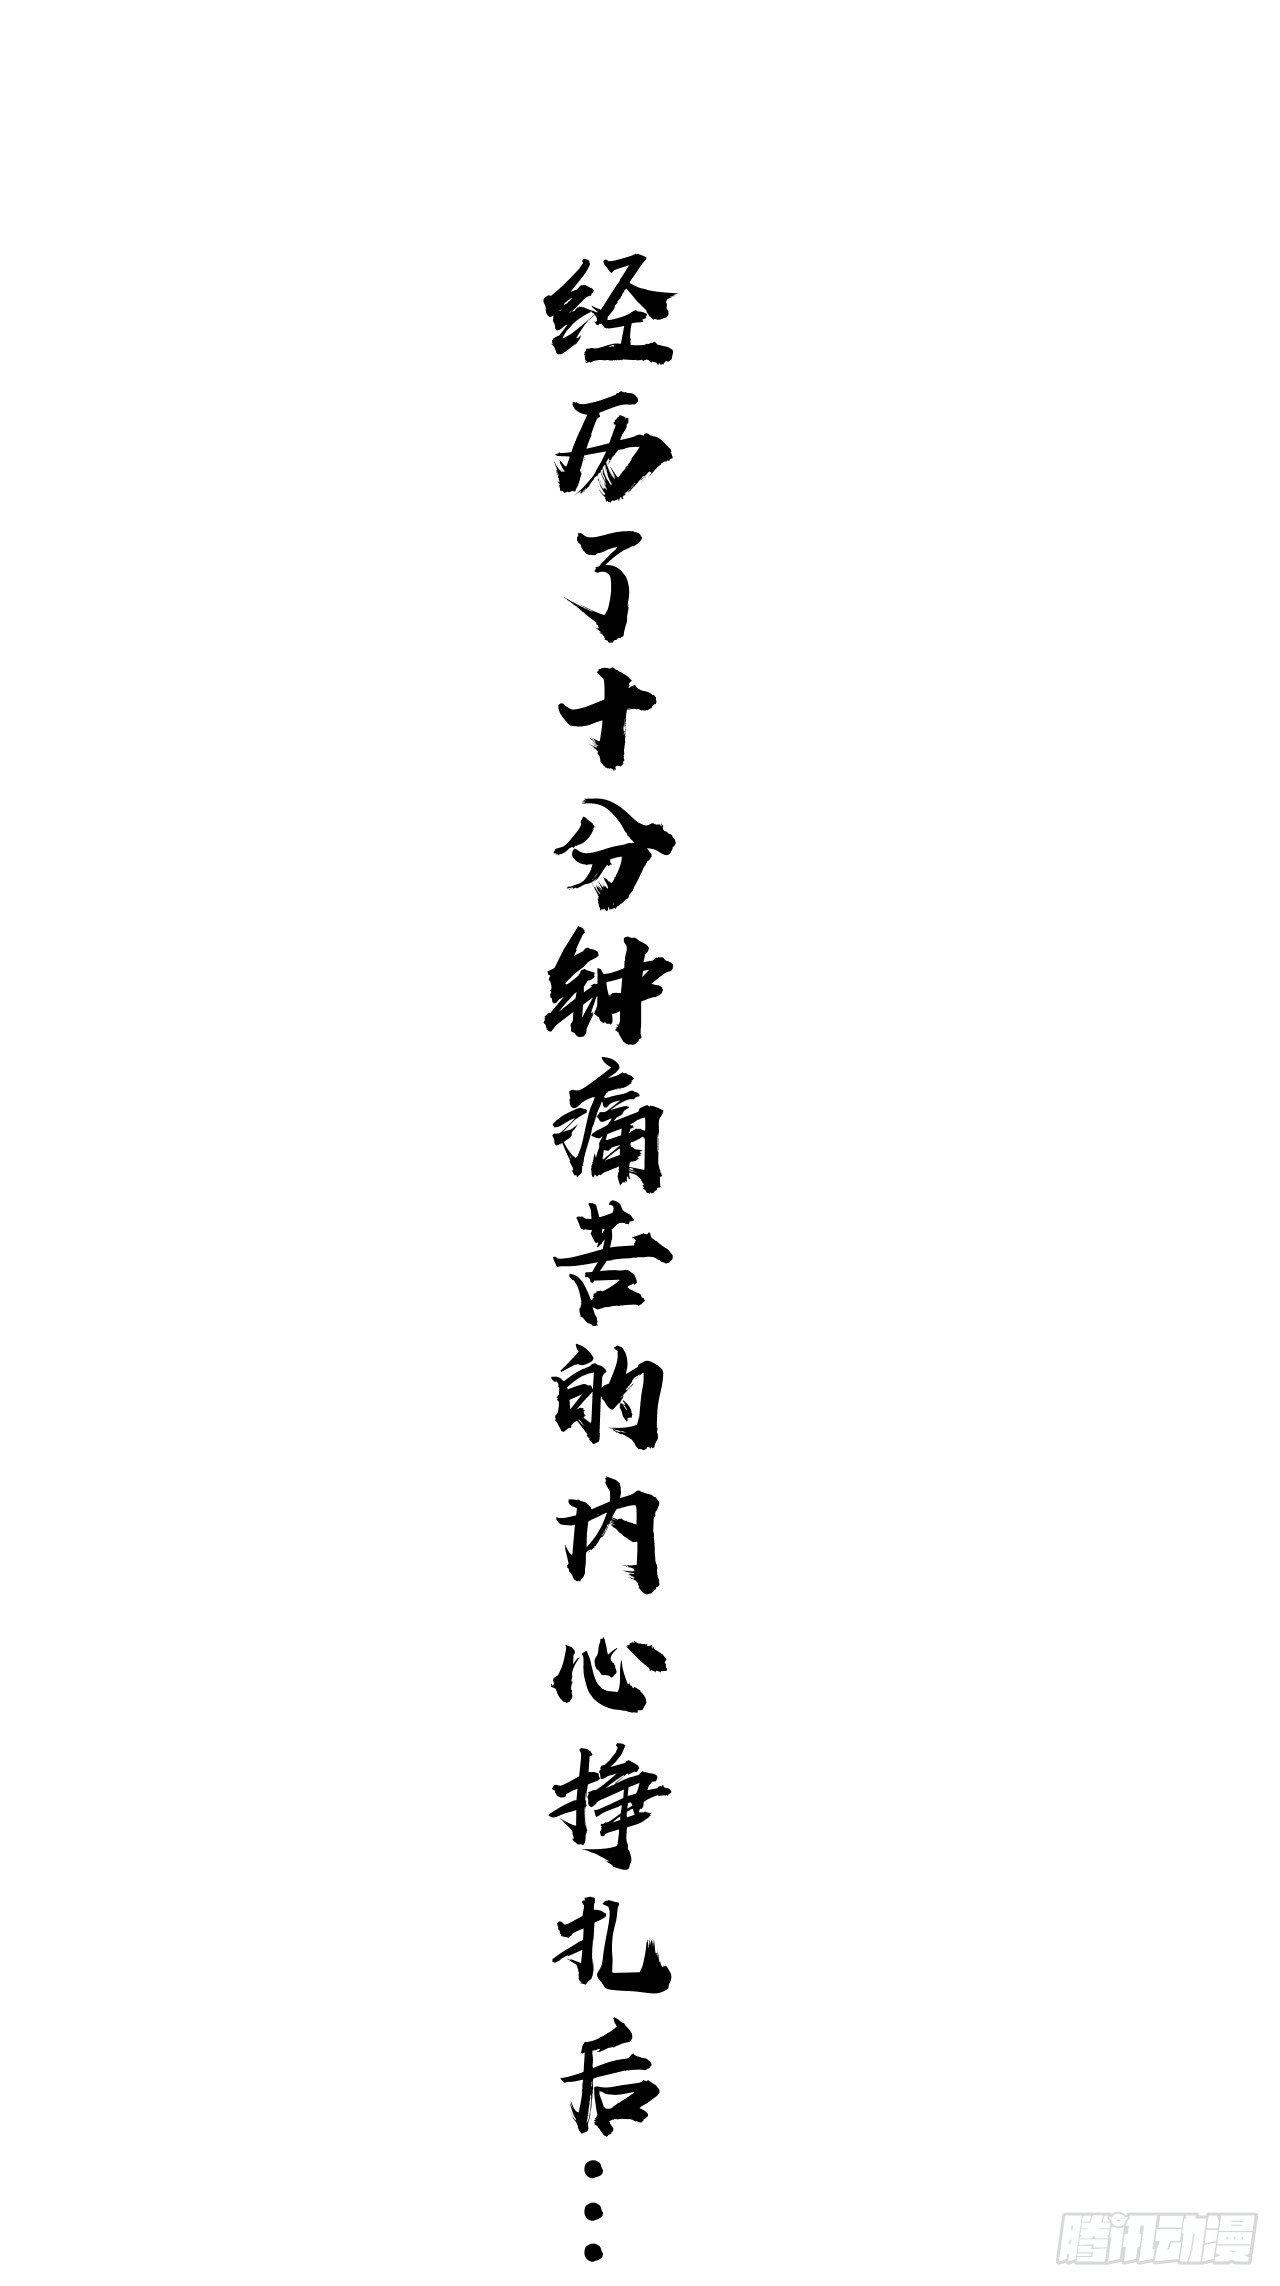 经历了十分钟痛苦的内心挣扎后…
腾讯动漫